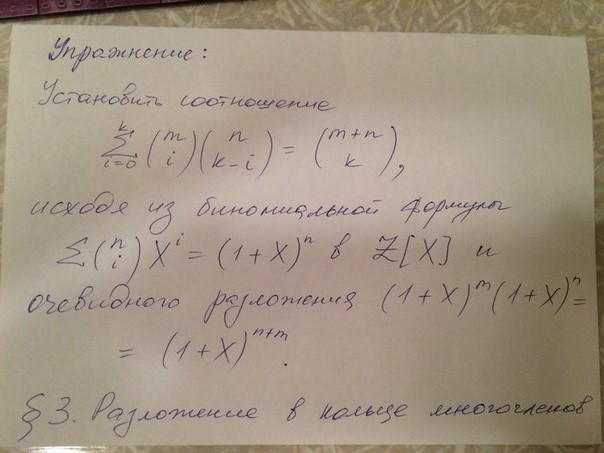 Упражнение:
Установить соотношение
∑_{i=0}^{k} (m i) (n k-i) = (m+n k),
исходя из биномиальной формулы
∑ (n i) X^i = (1+X)^n в ℤ[X] и
очевидного разложения (1+X)^m (1+X)^n =
= (1+X)^{n+m}.
§3. Разложение в кольце многочленов